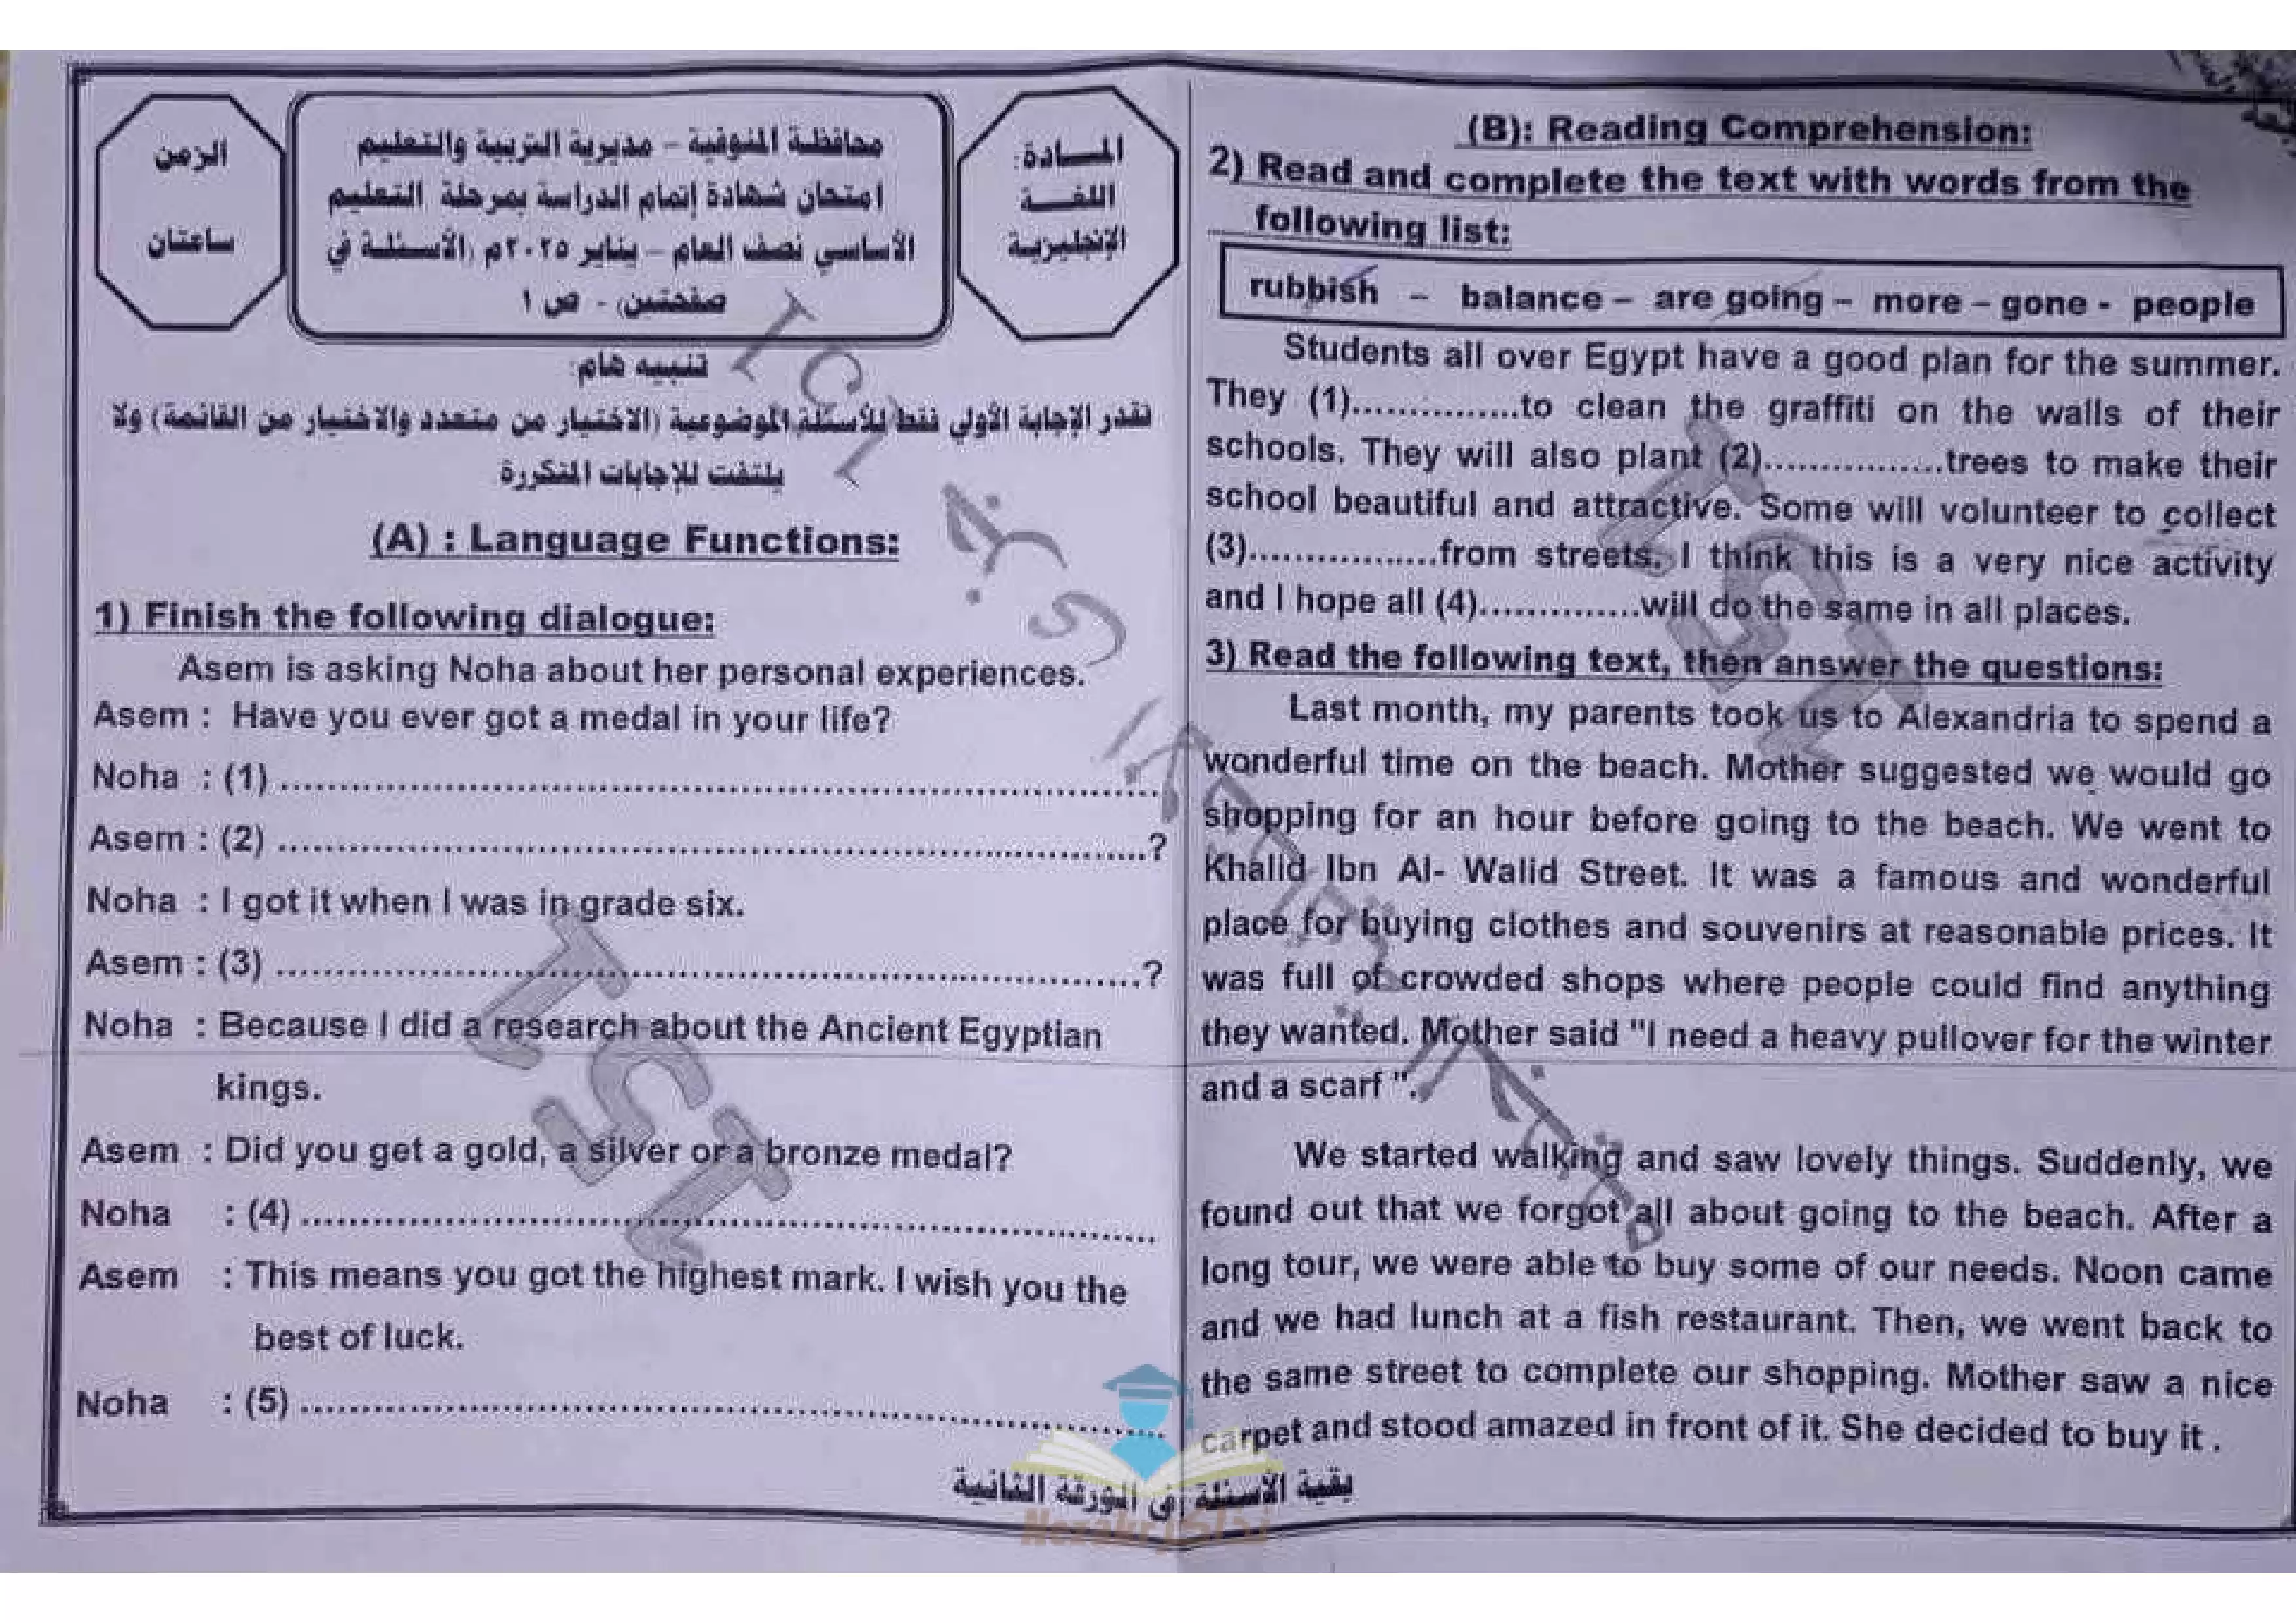 الزمن
ساعتان
محافظة المنوفية – مديرية التربية والتعليم
امتحان شهادة إتمام الدراسة بمرحلة التعليم
الأساسي نصف العام – يناير ٢٠٢٥م (الأسئلة في
صفحتين) - ص ١
المادة:
اللغة
الإنجليزية
تنبيه هام:
تقدر الإجابة الأولي فقط للأسئلة الموضوعية (الاختيار من متعدد والاختيار من القائمة) ولا
يلتفت للإجابات المتكررة
(A) : Language Functions:
1) Finish the following dialogue:
Asem is asking Noha about her personal experiences.
Asem : Have you ever got a medal in your life?
Noha : (1) ................................................
Asem : (2) ................................................?
Noha : I got it when I was in grade six.
Asem : (3) ................................................?
Noha : Because I did a research about the Ancient Egyptian
kings.
Asem : Did you get a gold, a silver or a bronze medal?
Noha : (4) ................................................
Asem : This means you got the highest mark. I wish you the
best of luck.
Noha : (5) ................................................
(B): Reading Comprehension:
2) Read and complete the text with words from the
following list:
rubbish – balance – are going – more – gone - people
Students all over Egypt have a good plan for the summer.
They (1)................to clean the graffiti on the walls of their
schools. They will also plant (2).................trees to make their
school beautiful and attractive. Some will volunteer to collect
(3)..................from streets. I think this is a very nice activity
and I hope all (4)...............will do the same in all places.
3) Read the following text, then answer the questions:
Last month, my parents took us to Alexandria to spend a
wonderful time on the beach. Mother suggested we would go
shopping for an hour before going to the beach. We went to
Khalid Ibn Al- Walid Street. It was a famous and wonderful
place for buying clothes and souvenirs at reasonable prices. It
was full of crowded shops where people could find anything
they wanted. Mother said "I need a heavy pullover for the winter
and a scarf ".
We started walking and saw lovely things. Suddenly, we
found out that we forgot all about going to the beach. After a
long tour, we were able to buy some of our needs. Noon came
and we had lunch at a fish restaurant. Then, we went back to
the same street to complete our shopping. Mother saw a nice
carpet and stood amazed in front of it. She decided to buy it .
بقية الأسئلة في الورقة الثانية
Nezakr نذاكر